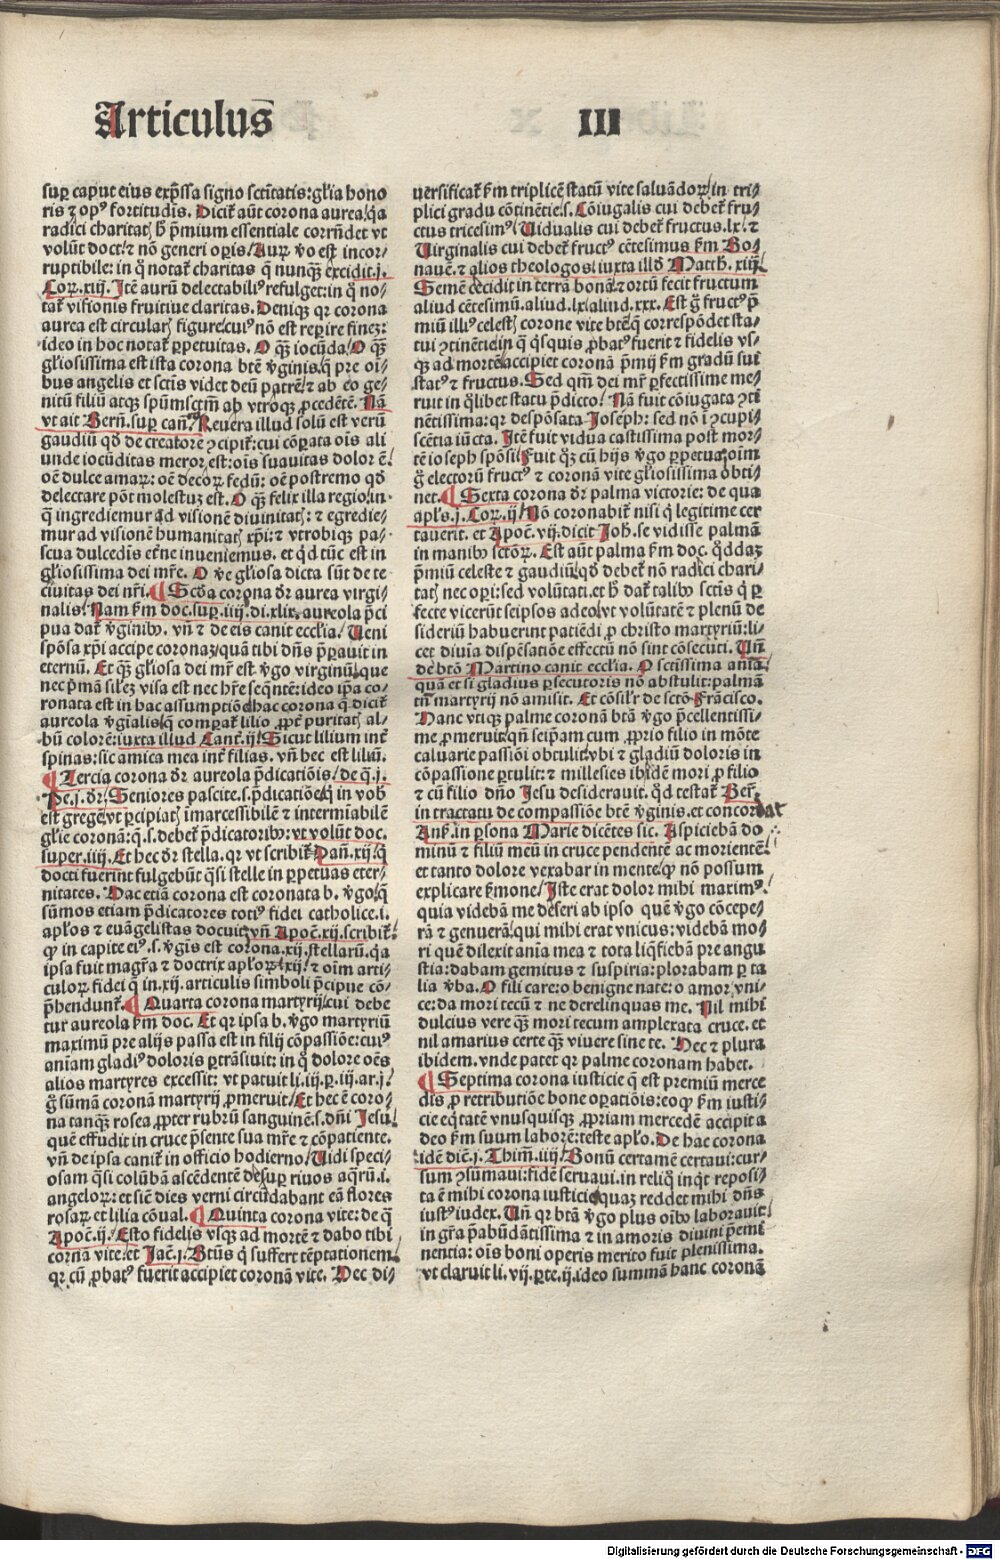 Articulus III
sup̲ caput eius exp̄ssa signo sctitatis: gl̄ia hono
ris ⁊ op⁹ fortitudis. Dicit̄ aūt corona aurea/q̄a
radici charitat̄ hͦ p̄mium essentiale corrn̄det vt
volūt doct. ⁊ nō generi op̲is/Auꝝ ꝟo est incor⸗
ruptibile: in q̊ notat̄ charitas q̄ nunqͣȝ excidit.j.
Coꝝ.xiij. Itē aurū delectabiliꝰ refulget: in q̊ no⸗
tat̄ visionis fruitiue claritas. Deniqꝫ qꝛ corona
aurea est circularꝭ figure/cuiꝰ nō est reꝑire fineȝ:
ideo in hoc notat̄ ꝑpetuitas. O qͣȝ iocūda/O qͣȝ
gl̄iosissima est ista corona btē ꝟginis/q̄ pre oi⸗
bus angelis et sctis videt deū patrē/⁊ ab eo ge⸗
nitū filiū atqꝫ spūmsctm̄ ab vtroqꝫ ꝓcedētē. Nā
vt ait Bern̄.suꝑ can̄./Reuera illud solū est verū
gaudiū qd̓ de creatore ꝯcipit̄: cui cōꝑata oīs ali
unde iocūditas meror est: oīs suauitas dolor ē.
oē dulce amaꝝ: oē decoꝝ fedū: oē postremo qd̓
delectare pōt molestuȝ est. O qͣȝ felix illa regio/in
q̄ ingrediemur ad visionē diuinitatꝭ: ⁊ egredie⸗
mur ad visionē humanitatꝭ xp̄i: ⁊ vtrobiqꝫ pa⸗
scua dulcedis et̄ne inueniemus. et qd̓ tūc est in
gl̄iosissima dei mr̄e. O ꝟe gl̄iosa dicta sūt de te
ciuitas dei nr̄i. ¶ Scd̓a corona dr̄ aurea virgi⸗
nalis/Nam ẜm doc.suꝑ.iiij.di.xlix. aureola p̄ci
pua dat̄ ꝟginibꝰ. vn̄ ⁊ de eis canit eccl̄ia/Veni
spōsa xp̄i accipe coronaȝ/quā tibi dn̄s p̄parauit in
eternū. Et qͣȝ gl̄iosa dei mr̄ est ꝟgo virginū/que
nec p̄mā sil̄eȝ visa est nec hr̄e seq̄ntē: ideo ip̄a co⸗
ronata est in hac assumptiōe/hac corona q̄ dicit̄
aureola ꝟgīalis/q̄ comꝑat̄ lilio ꝓpt̄ puritatꝭ al⸗
bū colorē: iuxta illud Cant̄.ij/Sicut lilium int̄
spinas: sic amica mea int̄ filias. vn̄ hec est liliū.
¶ Tercia corona dr̄ aureola p̄dicatiōis/de q̄.j.
Pe.j.dr̄/Seniores pascite.s.p̄dicatiōe/q̄ in vob̄
est gregē/vt ꝑcipiatꝭ imarcessibilē ⁊ intermiabilē
gl̄ie coronā: q̄.s.debet̄ p̄dicatoribꝰ: vt volūt doc.
super.iiij. Et hec dr̄ stella. qꝛ vt scribit̄ Dan̄.xij/q̄
docti fuerint fulgebūt q̄si stelle in ꝑpetuas eter⸗
nitates. Hac etiā corona est coronata b. ꝟgo/q̄
sūmos etiam p̄dicatores totiꝰ fidei catholice.i.
apl̄os ⁊ euāgelistas docuit/vn̄ Apoc̄.xij.scribit̄.
ꝙ in capite eiꝰ.s.ꝟgis est corona.xij.stellarū.q̄a
ipsa fuit magr̄a ⁊ doctrix apl̄oꝝ/xij/⁊ oīm arti⸗
culoꝝ fidei q̄ in.xij.articulis simboli p̄cipue cō⸗
p̄hendunt̄. ¶ Quarta corona martyrij/cui debe
tur aureola ẜm doc. Et qꝛ ipsa b. ꝟgo martyriū
maximū pre alijs passa est in filij cōpassiōe: cuiꝰ
aniam gladiꝰ doloris ꝑtrāsiuit: in q̊ dolore oēs
alios martyres excessit: vt patuit li.iij.ꝑ.iij.ar.j.
g̊ sūmā coronā martyrij ꝓmeruit/Et hec ē coro⸗
na tanqͣȝ rosea ꝓpter rubrū sanguinē.s.dn̄i Jesu
quē effudit in cruce p̄sente sua mr̄e ⁊ cōpatiente.
vn̄ de ipsa canit̄ in officio hodierno/Vidi speci⸗
osam q̄si colūbā ascēdentē desuꝑ riuos aq̄rū.i.
angeloꝝ: et siē dies verni circūdabant eā flores
rosaꝝ et lilia cōual. ¶ Quinta corona vite: de q̄
Apoc̄.ij./Esto fidelis vsqꝫ ad mortē ⁊ dabo tibi
cornā vite. et Jac̄.j. Btūs q̄ suffert tēptationem
qꝛ cū ꝓbatꝰ fuerit accipiet coronā vite. Hec di⸗
uersificat̄ ẜm triplicē statū vite saluādoꝝ/in tri⸗
plici gradu cōtinētie/s. Cōiugalis cui debet̄ fru⸗
ctus tricesimꝰ/Vidualis cui debet̄ fructus.lx. ⁊
Virginalis cui debet̄ fructꝰ cētesimus ẜm Bo⸗
nauē. ⁊ alios theologos/iuxta illd̓ Matth̄.xiij.
Semē cecidit in terrā bonā/⁊ ortū fecit fructum
aliud cētesimū.aliud.lx/aliud.xxx. Est g̊ fructꝰ p̄
miū illiꝰ celestꝭ corone vite btēqꝫ correspōdet sta⸗
tui ꝯtinētie/in q̊ q̄squis ꝓbatꝰ fuerit ⁊ fidelis vs⸗
qꝫ ad mortē/accipiet coronā p̄mij ẜm gradū sui
statꝰ ⁊ fructus. Sed qm̄ dei mr̄ ꝑfectissime me⸗
ruit in q̊libet statu p̄dicto/ Nā fuit cōiugata ⁊cti
nētissima: qꝛ despōsata Joseph: sed nō ī ꝯcupi⸗
scētia iūcta. Itē fuit vidua castissima post mor⸗
tē ioseph spōsi/Fuit qͦꝫ cū hijs ꝟgo ꝑpetua/oīm
g̊ electorū fructꝰ ⁊ coronā vite gl̄iosissima obti⸗
net. ¶ Sexta corona dr̄ palma victorie: de qua
apl̄s.j.Coꝝ.ij/Nō coronabit̄ nisi q̄ legitime cer
tauerit. et Apoc̄.vij.dicit Joh̄.se vidisse palmā
in manibꝰ sctōꝝ. Est aūt palma ẜm doc. q̊ddaȝ
p̄miū celeste ⁊ gaudiū/qd̓ debet̄ nō radici chari⸗
tatꝭ nec oꝑi: sed volūtati. et hͦ dat̄ talibꝰ sctis q̄ ꝑ
fecte vicerūt seipsos adeo/vt volūtatē ⁊ plenū de
sideriū habuerint patiēdi ꝓ christo martyriū: li⸗
cet diuīa dispēsatiōe effectū nō sint cōsecuti. Vn̄
de btō Martino canit eccl̄ia. O sctissima anīa
quā et si gladius ꝑsecutoris nō abstulit: palmā
tn̄ martyrij nō amisit. Et cōsil̄r de sctō Frācisco.
Hanc vtiqꝫ palme coronā btā ꝟgo p̄cellentissi⸗
me ꝓmeruit/qn̄ seip̄am cum ꝓprio filio in mōte
caluarie passiōi obtulit/vbi ⁊ gladiū doloris in
cōpassione ꝑtulit: ⁊ millesies ibidē mori ꝓ filio
⁊ cū filio dn̄o Jesu desiderauit. qd̓ testat̄ Ber̄.
in tractatu de compassiōe btē ꝟginis. et concordat
Anẜ.in ꝑsona Marie dicētes sic. Aspiciebā do
minū ⁊ filiū meū in cruce pendentē ac morientē
et tanto dolore vexabar in mente/qͦ nō possum
explicare ẜmone/Iste erat dolor mihi maximꝰ.
quia videbā me deseri ab ipso quē ꝟgo cōcepe⸗
rā ⁊ genuerā/qui mihi erat vnicus: videbā mo⸗
ri quē dilexit anīa mea ⁊ tota liq̄fiebā pre angu
stia: dabam gemitus ⁊ suspiria: plorabam ꝑ ta
lia ꝟba. O fili care: o benigne nate: o amor vni⸗
ce: da mori tecū ⁊ ne derelinquas me. Nil mihi
dulcius vere qͣȝ mori tecum amplexata cruce. et
nil amarius certe qͣȝ viuere sine te. Hec ⁊ plura
ibidem. vnde patet qꝛ palme coronam habet.
¶ Septima corona iusticie q̄ est premiū merce
dis ꝓ retributiōe bone oꝑatiōis: eo ꝙ ẜm iusti⸗
cie eq̄tatē vnusquisqꝫ ꝓpriam mercedē accipit a
deo ẜm suum laborē: teste apl̄o. De hac corona
idē diē.j. Thim̄.iiij/Bonū certamē certaui: cur⸗
sum ꝯsūmaui: fidē seruaui. in reliq̊ inq̄t reposi⸗
ta ē mihi corona iusticie/quaȝ reddet mihi dn̄s
iustꝰ iudex. Vn̄ qꝛ btā ꝟgo plus oībꝰ laborauit
in gr̄a p̄abūdātissima ⁊ in amoris diuini p̄emi
nentia: oīs boni operis merito fuit plenissima.
vt claruit li. vij. ꝑte.ij.ideo summā hanc coronā
Digitalisierung gefördert durch die Deutsche Forschungsgemeinschaft - DFG